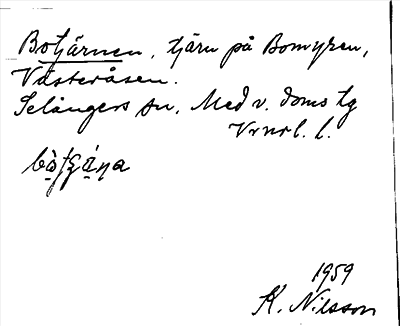 Botjärnen, tjärn på Bomyren,
Västeråsen.
Selångers sn, Med v. doms tg
Vrnrl. l.
1959
K. Nilsson